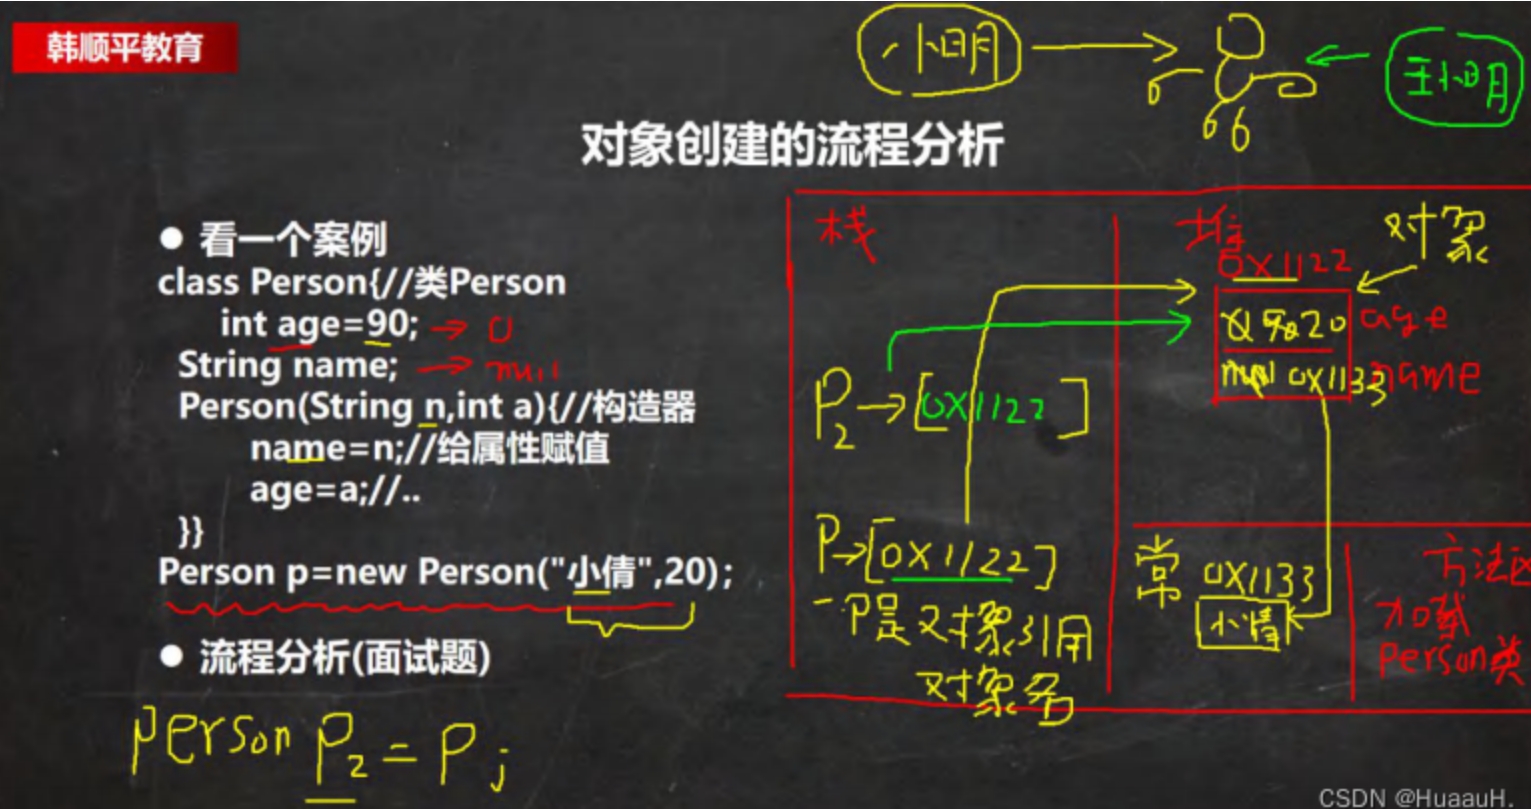 韩顺平教育
小明
王小明
对象创建的流程分析
● 看一个案例
class Person{//类Person
int age=90; → 0
String name; → null
Person(String n,int a){//构造器
name=n;//给属性赋值
age=a;//..
}}
Person p=new Person("小倩",20);
● 流程分析(面试题)
person P2 = P;
栈
P2→[0X1122]
P→[0X1122]
P是对象引用
对象名
堆
对象
0X1122
20 age
null 0X1133 name
常
0X1133
小倩
方法区
加载
Person类
CSDN @HuaauH.